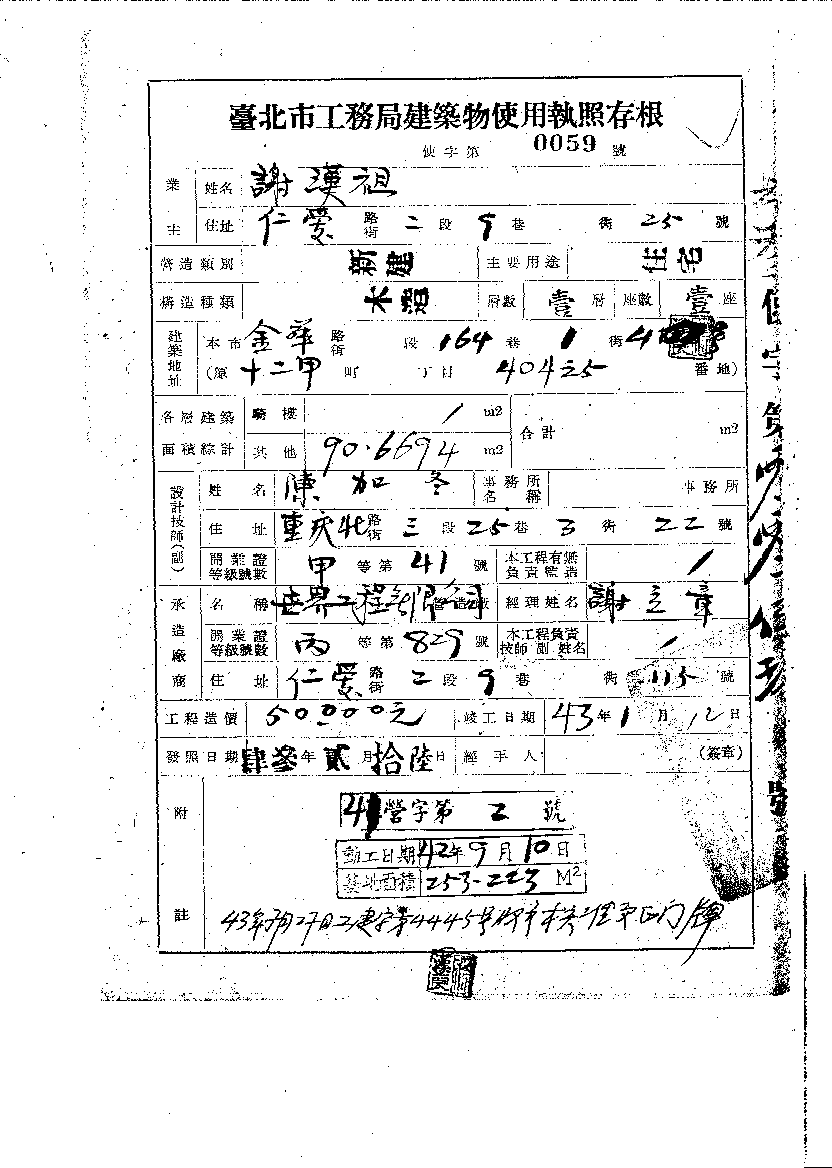 臺北市工務局建築物使用執照存根
使字第 0059 號
業主 姓名 謝漢祖
住址 仁愛路街 二段 9巷 街 25號
營造類別 新建 主要用途 住宅
構造種類 木造 層數 壹層 座數 壹座
建築地址 本市 金華路街 段 164巷 1街 4
(原 十二甲町 丁目 404之5 番地)
各層建築面積綜計 騎樓 / m2 合計 m2
其他 90.6694 m2
設計技師(副) 姓名 陳加冬 事務所名稱 事務所
住址 重庆北路街 三段 25巷 3街 22號
開業證等級號數 甲等第 41號 本工程有無負責監造 /
承造廠商 名稱 世界工程有限公司 經理姓名 謝立章
開業證等級號數 丙等第 829號 本工程負責技師副姓名 /
住址 仁愛路街 二段 9巷 街 115號
工程造價 50000元 竣工日期 43年1月12日
發照日期 肆叁年貳月拾陸日 經手人 (簽章)
附註
41營字第 2 號
動工日期 42年9月10日
基地面積 253.223 M²
43年 月27日工建字第4445號